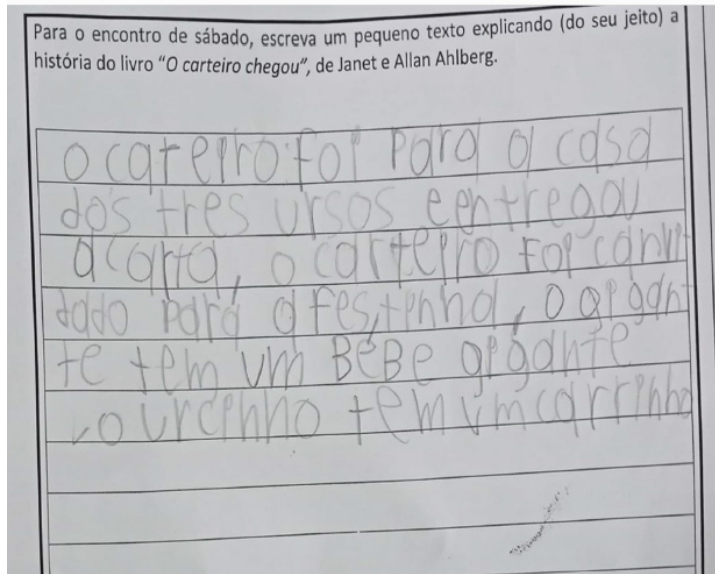 Para o encontro de sábado, escreva um pequeno texto explicando (do seu jeito) a
história do livro “O carteiro chegou”, de Janet e Allan Ahlberg.
O carteiro foi para a casa
dos tres ursos eentregou
a carta, o carteiro foi canvi
dado para a festinha, o gigan
te tem um BéBe gigante
o urcinho tem um carrinho